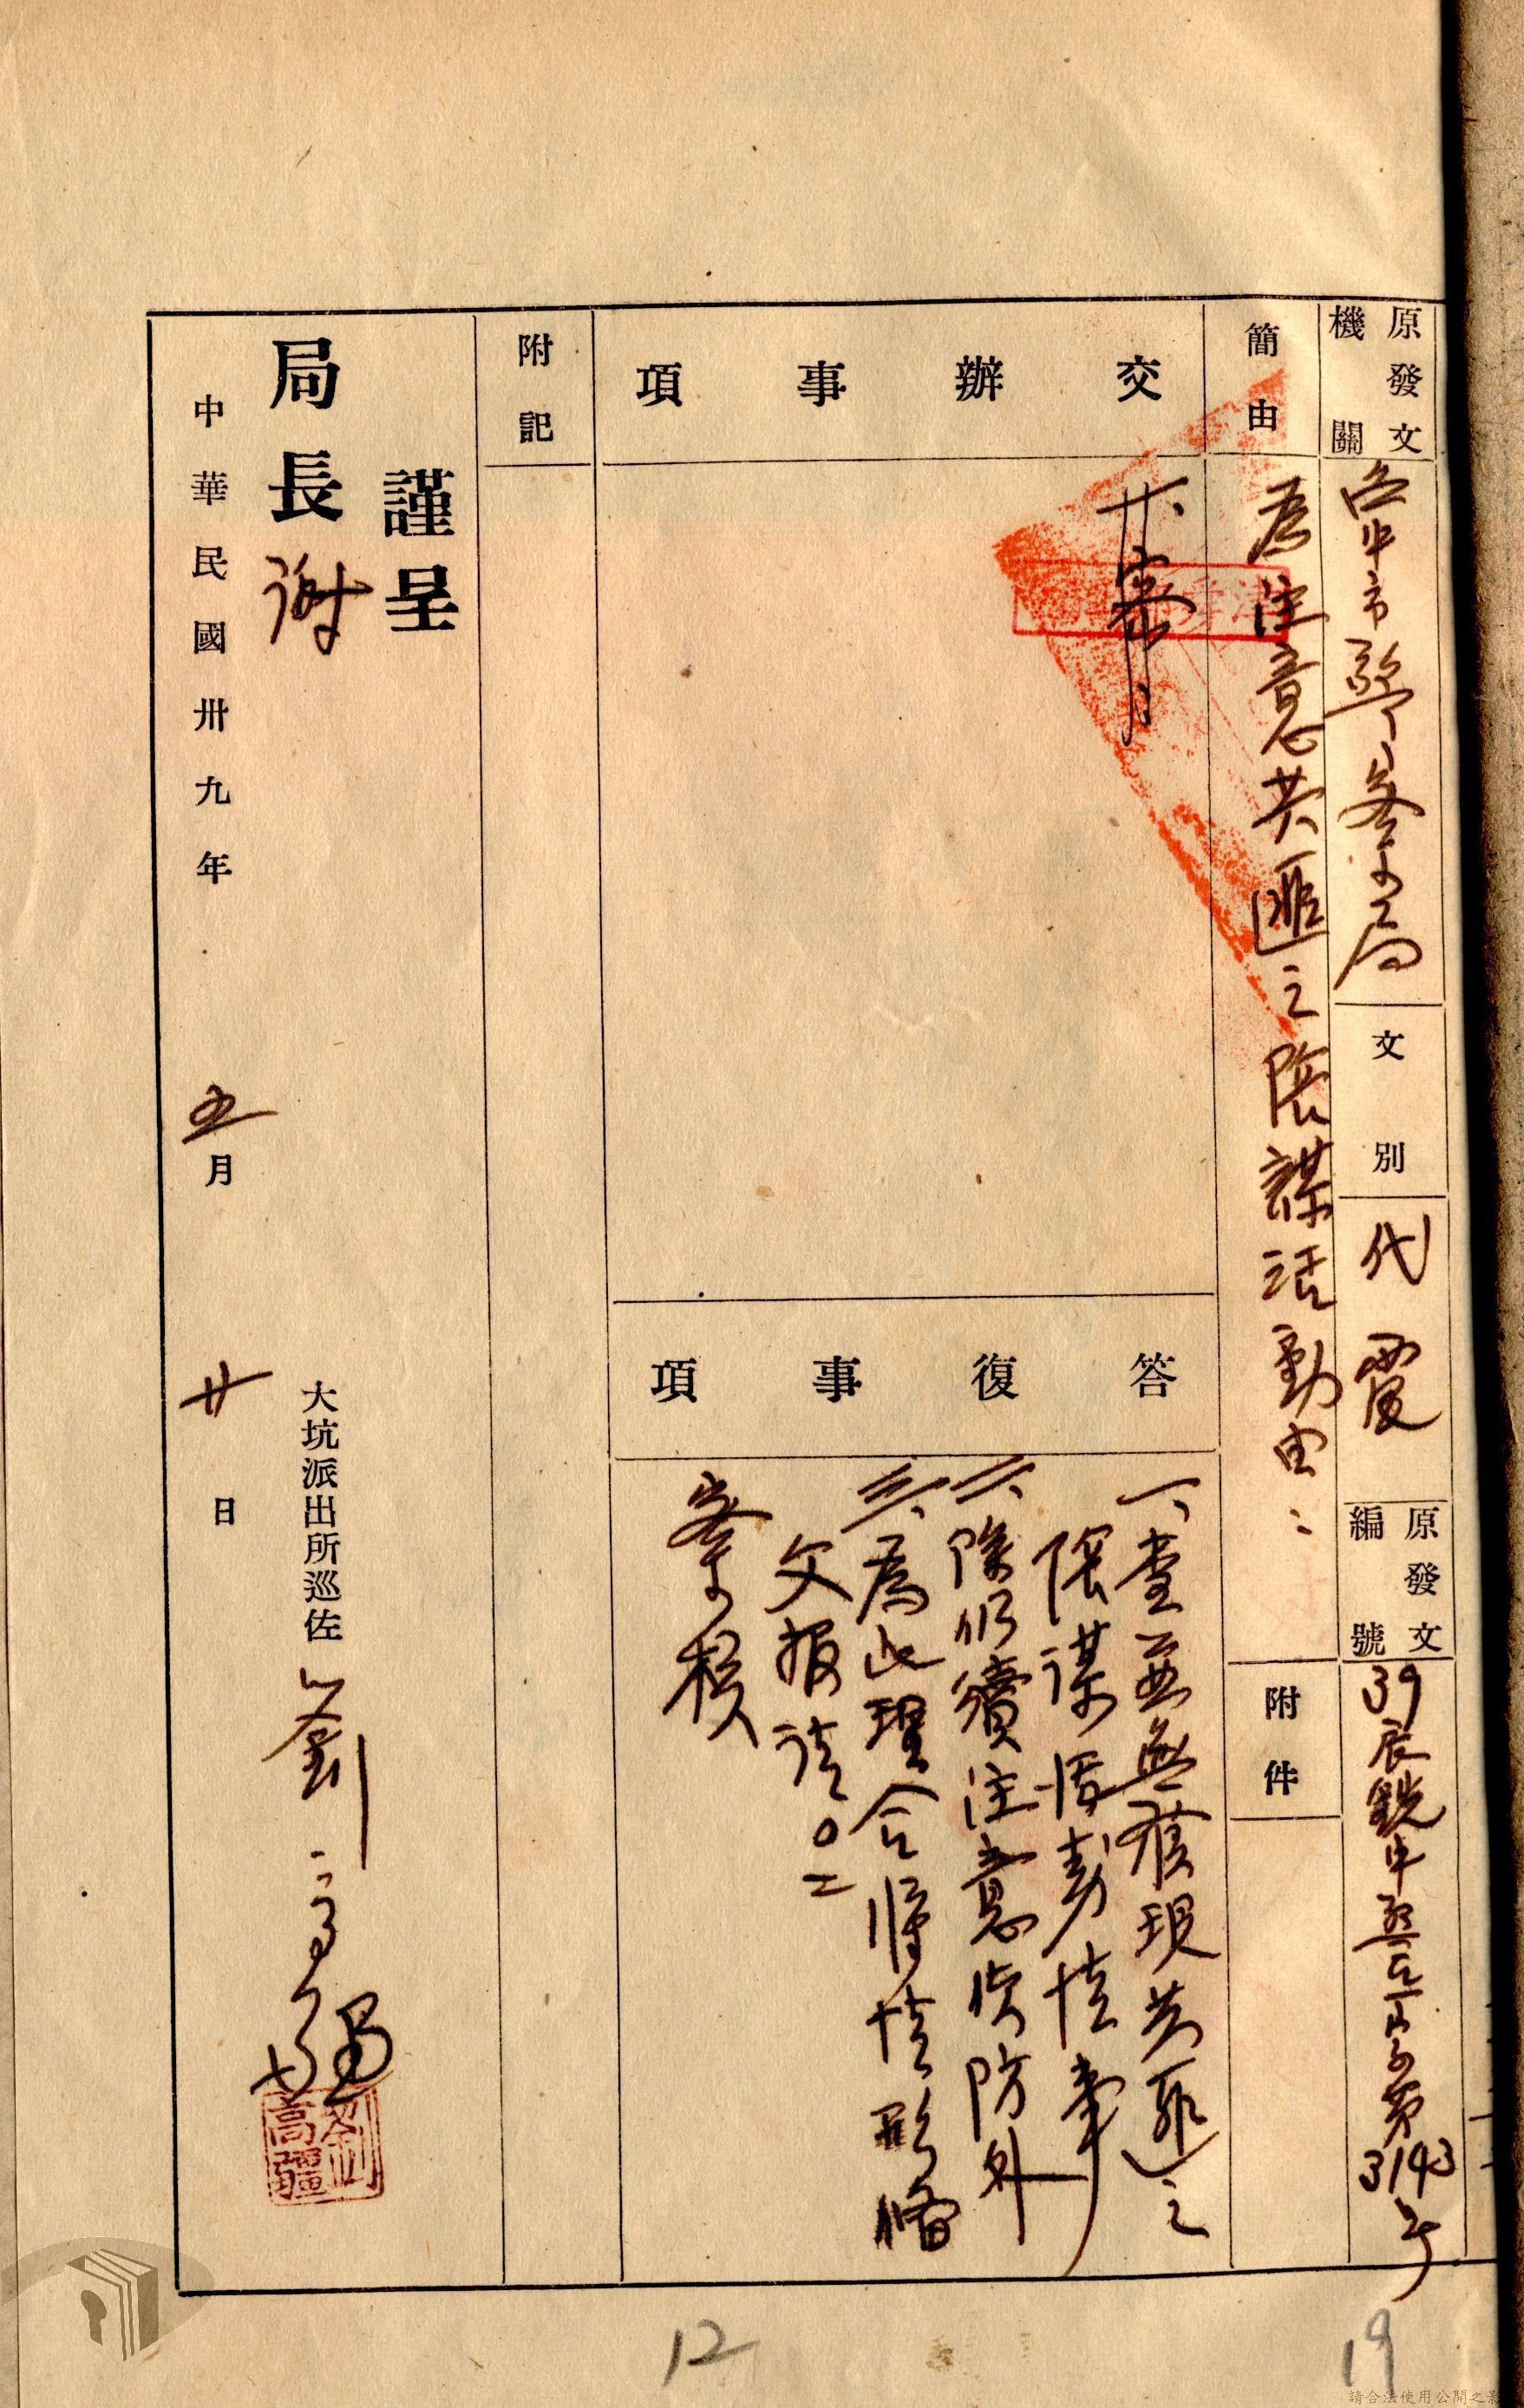 原發文
機關
台中市警察局
文別
代電
原發文
編號
39辰銑中警
第3143号
簡由
為注意共匪之陰謀活動由
附件
交辦事項
答復事項
一、查並無發現共匪之
陰謀活動情事
二、除仍續注意偵防外
三、為此理合將情形備
文報請
察核
附記
謹呈
局長謝
大坑派出所巡佐劉高疆
劉高疆
中華民國卅九年五月廿日
12
19
請合法使用公開之影